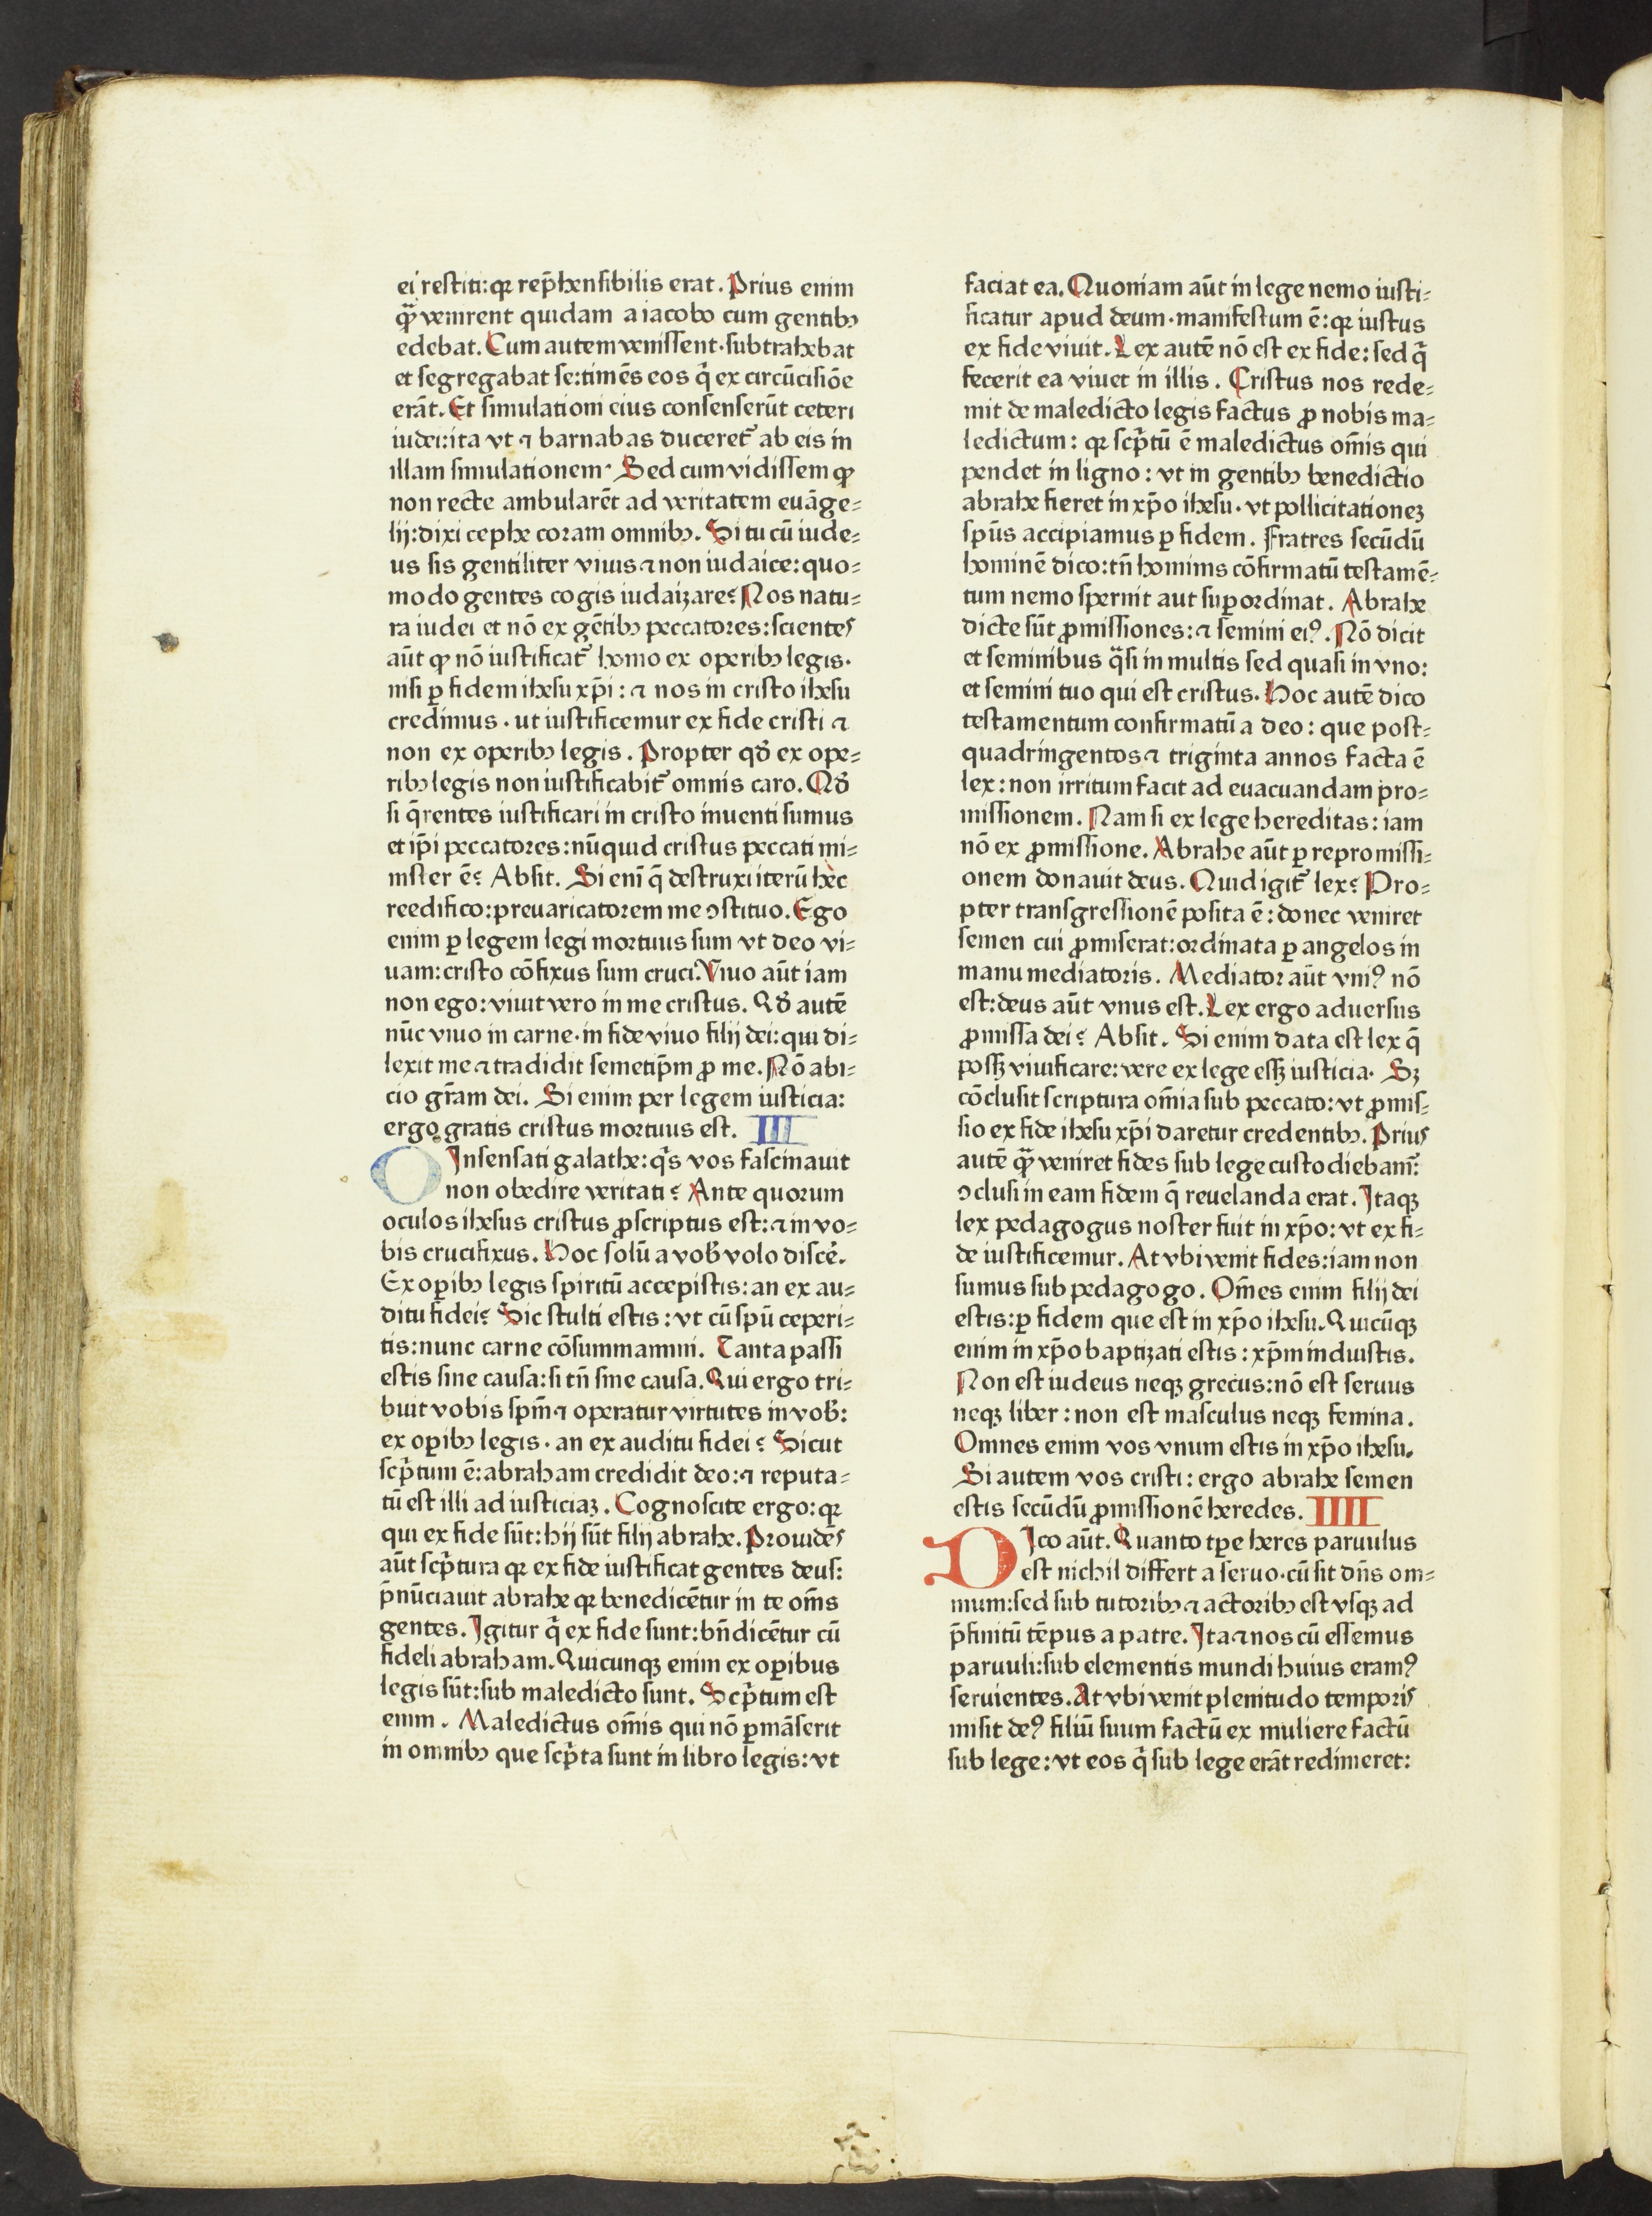 ei restiti: qꝛ rep̄hensibilis erat. Prius enim
qͣ̄ venirent quidam a iacobo cum gentibꝰ
edebat. Cum autem venissent· subtrahebat
et segregabat se: timēs eos q̄ ex circūcisiōe
erāt. Et simulationi eius consenserūt ceteri
iudei: ita vt ⁊ barnabas duceret᷑ ab eis in
illam simulationem· Sed cum vidissem ꝙ
non recte ambularēt ad veritatem euāge⸗
lij: dixi cephe coram omnibꝰ. Si tu cū iude⸗
us sis gentiliter viuis ⁊ non iudaice: quo⸗
modo gentes cogis iudaizare? Nos natu⸗
ra iudei et nō ex gētibꝰ peccatores: scientes
aūt ꝙ nō iustificat᷑ homo ex operibꝰ legis·
nisi ꝑ fidem ihesu xp̄i: ⁊ nos in cristo ihesu
credimus · ut iustificemur ex fide cristi ⁊
non ex operibꝰ legis. Propter qđ ex ope⸗
ribꝰ legis non iustificabit᷑ omnis caro. Qđ
si q̄rentes iustificari in cristo inuenti sumus
et ip̄i peccatores: nūquid cristus peccati mi⸗
nister ē? Absit. Si eni̅ q̄ destruxi iterū hec
reedifico: preuaricatorem me ꝯstituo. Ego
enim ꝑ legem legi mortuus sum vt deo vi⸗
uam: cristo cōfixus sum cruci. Viuo aūt iam
non ego: viuit vero in me cristus. Qđ autē
nūc viuo in carne· in fide viuo filij dei: qui di⸗
lexit me ⁊ tradidit semetip̄m ꝓ me. Nō abi⸗
cio gr̄am dei. Si enim per legem iusticia:
ergo gratis cristus mortuus est. III
O Insensati galathe: qͥs vos fascinauit
non obedire veritati? Ante quorum
oculos ihesus cristus ꝓscriptus est: ⁊ in vo⸗
bis crucifixus. Hoc solū a vob̄ volo discē.
Ex oꝑibꝰ legis spiritū accepistis: an ex au⸗
ditu fidei? Sic stulti estis: vt cū spū ceperi⸗
tis: nunc carne cōsummamini. Tanta passi
estis sine causa: si tn̄ sine causa. Qui ergo tri⸗
buit vobis spm̄ ⁊ operatur virtutes in vob̄:
ex oꝑibꝰ legis · an ex auditu fidei? Sicut
scp̄tum ē: abraham credidit deo: ⁊ reputa⸗
tū est illi ad iusticiaꝫ. Cognoscite ergo: qꝛ
qui ex fide sūt: hij sūt filij abrahe. Prouidēs
aūt scp̄tura qꝛ ex fide iustificat gentes deus:
p̄nūciauit abrahe qꝛ benedicētur in te om̄s
gentes. Igitur q̄ ex fide sunt: bn̄dicētur cū
fideli abraham. Quicunqꝫ enim ex oꝑibus
legis sūt: sub maledicto sunt. Scp̄tum est
enim. Maledictus om̄is qui nō ꝑmāserit
in omnibꝰ que scp̄ta sunt in libro legis: vt
faciat ea. Quoniam aūt in lege nemo iusti⸗
ficatur apud deum· manifestum ē: qꝛ iustus
ex fide viuit. Lex autē nō est ex fide: sed q̄
fecerit ea viuet in illis. Cristus nos rede⸗
mit de maledicto legis factus ꝓ nobis ma⸗
ledictum: qꝛ scp̄tū ē maledictus om̄is qui
pendet in ligno: vt in gentibꝰ benedictio
abrahe fieret in xp̄o ihesu· vt pollicitationeꝫ
spūs accipiamus ꝑ fidem. Fratres secūdū
hominē dico: tn̄ hominis cōfirmatū testamē⸗
tum nemo spernit aut suꝑordinat. Abrahe
dicte sūt ꝓmissiones: ⁊ semini eiꝰ. Nō dicit
et seminibus qͣsi in multis sed quasi in vno:
et semini tuo qui est cristus. Hoc autē dico
testamentum confirmatū a deo: que post⸗
quadringentos ⁊ triginta annos facta ē
lex: non irritum facit ad euacuandam pro⸗
missionem. Nam si ex lege hereditas: iam
nō ex ꝓmissione. Abrahe aūt ꝑ repromissi⸗
onem donauit deus. Quid igit᷑ lex? Pro⸗
pter transgressionē posita ē: donec veniret
semen cui ꝓmiserat: ordinata ꝑ angelos in
manu mediatoris. Mediator aūt vniꝰ nō
est: deus aūt vnus est. Lex ergo aduersus
ꝓmissa dei? Absit. Si enim data est lex q̄
possꝫ viuificare: vere ex lege essꝫ iusticia· Sꝫ
cōclusit scriptura om̄ia sub peccato: vt ꝓmis⸗
sio ex fide ihesu xp̄i daretur credentibꝰ. Prius
autē qͣ̄ veniret fides sub lege custodiebam᷑:
ꝯclusi in eam fidem q̄ reuelanda erat. Itaqꝫ
lex pedagogus noster fuit in xp̄o: vt ex fi⸗
de iustificemur. At vbi venit fides: iam non
sumus sub pedagogo. Om̄es enim filij dei
estis: ꝑ fidem que est in xp̄o ihesu. Quicūqꝫ
enim in xp̄o baptizati estis: xp̄m induistis.
Non est iudeus neqꝫ grecus: nō est seruus
neqꝫ liber: non est masculus neqꝫ femina.
Omnes enim vos vnum estis in xp̄o ihesu.
Si autem vos cristi: ergo abrahe semen
estis secūdū ꝓmissionē heredes. IIII
DIco aūt. Quanto tꝑe heres paruulus
est nichil differt a seruo· cū sit dn̄s om⸗
nium: sed sub tutoribꝰ ⁊ actoribꝰ est vsqꝫ ad
p̄finitū tēpus a patre. Ita ⁊ nos cū essemus
paruuli: sub elementis mundi huius eramꝰ
seruientes. At vbi venit plenitudo temporis
misit deꝰ filiū suum factū ex muliere factū
sub lege: vt eos q̄ sub lege erāt redimeret: